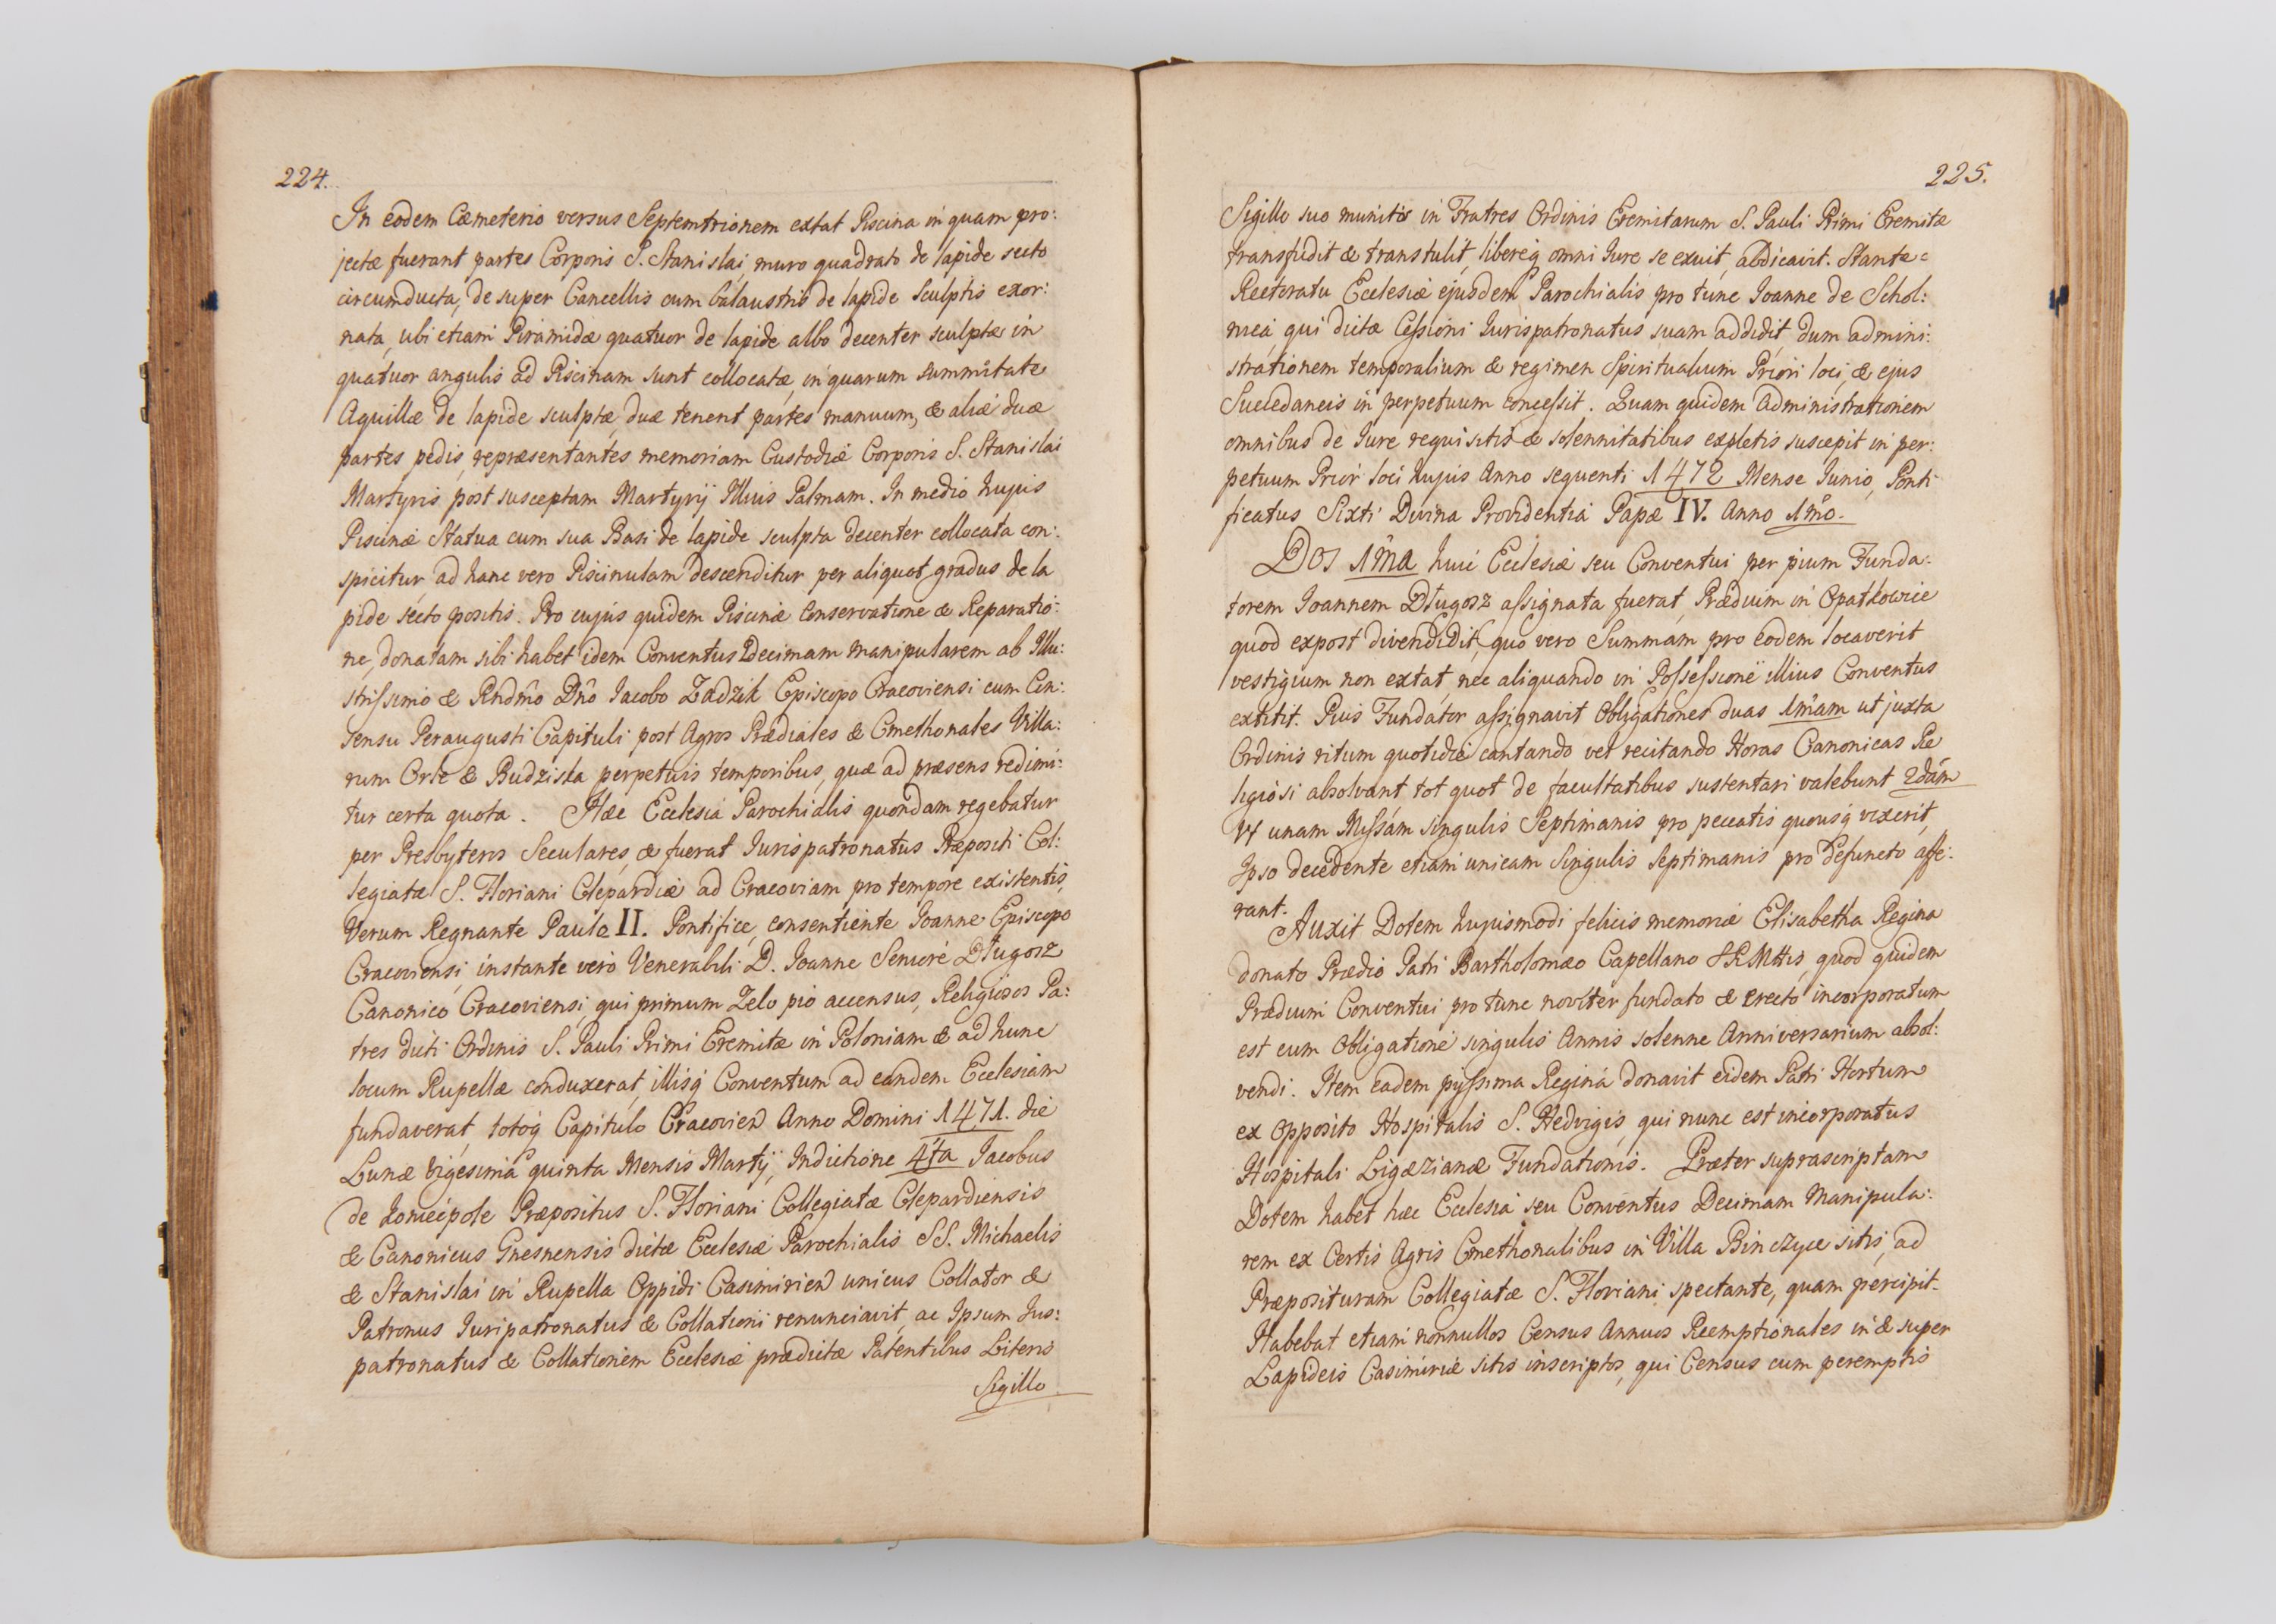 224.
In eodem Cæmeterio versus Septemtrionem extat Piscina in quam pro:
jectæ fuerant partes Corporis S. Stanislai, muro quadrato de lapide secto
circumducta, de super Cancellis cum balaustris de lapide sculptis exor:
nata, ubi etiam Piramidæ quatuor de lapide albo decenter sculptæ in
quatuor angulis ad Piscinam sunt collocatæ, in quarum summitate
Aquillæ de lapide sculptæ, duæ tenent partes manuum, & aliæ duæ
partes pedis, repræsentantes memoriam Custodiæ Corporis S. Stanislai
Martyris post susceptam Martyrij Illius Palmam. In medio hujus
Piscinæ Statua cum sua Basi de lapide sculpta decenter collocata con:
spicitur, ad hanc vero Piscinulam descenditur per aliquot gradus de la
pide secto positis. Pro cujus quidem Piscinæ conservatione & Reparatio:
ne, donatam sibi habet idem Conventus Decimam manipularem ab Illu:
strissimo & Rndmo Dno Iacobo Zadzik Episcopo Cracoviensi cum Con:
sensu Peraugusti Capituli post Agros Prædiales & Cmethonales Villa:
rum Orle & Budziska perpetuis temporibus, quæ ad præsens redimi:
tur certa quota. Hæc Ecclesia Parochialis quondam regebatur
per Presbyteros Seculares, & fuerat Jurispatronatus Præpositi Col:
legiatæ S. Floriani Clepardiæ ad Cracoviam pro tempore existentis,
Verum Regnante Paulo II. Pontifice, consentiente Ioanne Episcopo
Cracoviensi, instante vero Venerabili D. Ioanne Seniore Długosz
Canonico Cracoviensi, qui primum Zelo pio accensus, Religiosos Pa:
tres dicti Ordinis S. Pauli Primi Eremitæ in Poloniam & ad hunc
locum Rupellæ conduxerat, illisq Conventum ad eandem Ecclesiam
fundaverat, totoq Capitulo Cracovien Anno Domini 1471. die
Lunæ vigesima quinta Mensis Martij, Indictione 4ta Iacobus
de Koniecpole Præpositus S. Floriani Collegiatæ Clepardiensis
& Canonicus Gnesnensis dictæ Ecclesiæ Parochialis SS. Michaelis
& Stanislai in Rupella Oppidi Casimirien unicus Collator &
Patronus Juripatronatus & Collationi renunciavit, ac Ipsum Jus:
patronatus & Collationem Ecclesiæ prædictæ Patentibus Literis
Sigillo
225.
Sigillo suo munitis in Fratres Ordinis Eremitarum S. Pauli Primi Eremitæ
transfudit & transtulit, libereq omni Jure se exuit, abdicavit. Stante=
Rectoratu Ecclesiæ ejusdem Parochialis pro tunc Ioanne de Schol:
nica, qui dictæ Cessioni Jurispatronatus suam addidit, dum admini:
strationem temporalium & regimen Spiritualium Priori loci, & ejus
Succedaneis in perpetuum concessit. Quam quidem Administrationem
omnibus de Jure requisitis & solennitatibus expletis suscepit in per:
petuum Prior loci hujus Anno sequenti 1472 Mense Iunio, Ponti
ficatus Sixti Divina Providentia Papæ IV. Anno 1mo.
Dos 1ma huic Ecclesiæ seu Conventui per pium Funda:
torem Ioannem Długosz assignata fuerat, Prædium in Opatkowice
quod expost divendidit, quo vero Summam pro eodem locaverit
vestigium non extat, nec aliquando in Possessione illius Conventus
extitit. Pius Fundator assignavit Obligationes duas 1mam ut juxta
Ordinis ritum quotidie cantando vel recitando Horas Canonicas Re
ligiosi absolvant tot quot de facultatibus sustentari valebunt 2dam
Vt unam Missam singulis Septimanis pro peccatis quousq vixerit,
Ipso decedente etiam unicam singulis septimanis pro defuncto offe:
rant.
Auxit Dotem hujusmodi felicis memoriæ Elisabetha Regina
donato Prædio Patri Bartholomæo Capellano SRMttis, quod quidem
Prædium Conventui pro tunc noviter fundato & erecto incorporatum
est cum Obligatione singulis Annis solenne Anniversarium absol:
vendi. Item eadem pyssima Regina donavit eidem Patri Hortum
ex opposito Hospitalis S. Hedvigis, qui nunc est incorporatus
Hospitali Ligæzianæ Fundationis. Præter suprascriptam
Dotem habet hæc Ecclesia seu Conventus Decimam Manipula:
rem ex Certis Agris Cmethonalibus in Villa Binczyce sitis, ad
Præposituram Collegiatæ S. Floriani spectante, quam percipit.
Habebat etiam nonnullos Census Annuos Reemptionales in & super
Lapideis Casimiriæ sitis inscriptos, qui Census cum peremptis